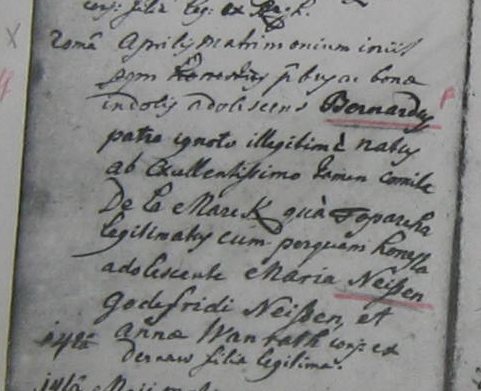 conj: filia leg: ex
20mã Aprilis matrimonium iniit
bonæ
indolis adolescens Bernardus
patre ignoto illegitimè natus
ab Excellentissimo tamen comite
De la Marck quà Toparcha
legitimatus cum perquam honesta
adolescente Maria Neißen
Godefridi Neißen, et
annæ Wanrath conj: ex
dernaw filia legitima.
14tâ
Maii